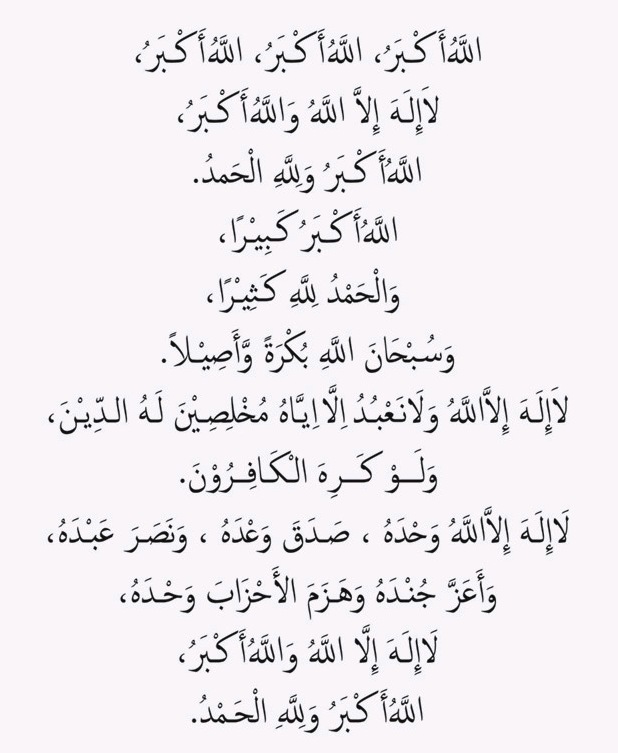 اللَّهُ أَكْبَرُ، اللَّهُ أَكْبَرُ، اللَّهُ أَكْبَرُ،
لاَإِلَهَ إِلاَّ اللَّهُ وَاللَّهُ أَكْبَرُ،
اللَّهُ أَكْبَرُ وَلِلَّهِ الْحَمدُ.
اللَّهُ أَكْبَرُ كَبِيْرًا،
وَالْحَمْدُ لِلَّهِ كَثِيْرًا،
وَسُبْحَانَ اللَّهِ بُكْرَةً وَّأَصِيْلاً.
لاَإِلَهَ إِلاَّاللَّهُ وَلَانَعْبُدُ اِلَّااِيَّاهُ مُخْلِصِيْنَ لَهُ الدِّيْنَ،
وَلَوْ كَرِهَ الْكَافِرُوْنَ.
لَاإِلَهَ إِلاَّاللَّهُ وَحْدَهُ ، صَدَقَ وَعْدَهُ ، وَنَصَرَ عَبْدَهُ،
وَأَعَزَّ جُنْدَهُ وَهَزَمَ الأَحْزَابَ وَحْدَهُ،
لَاإِلَهَ إِلَّا اللَّهُ وَاللَّهُ أَكْبَرُ،
اللَّهُ أَكْبَرُ وَلِلَّهِ الْحَمْدُ.